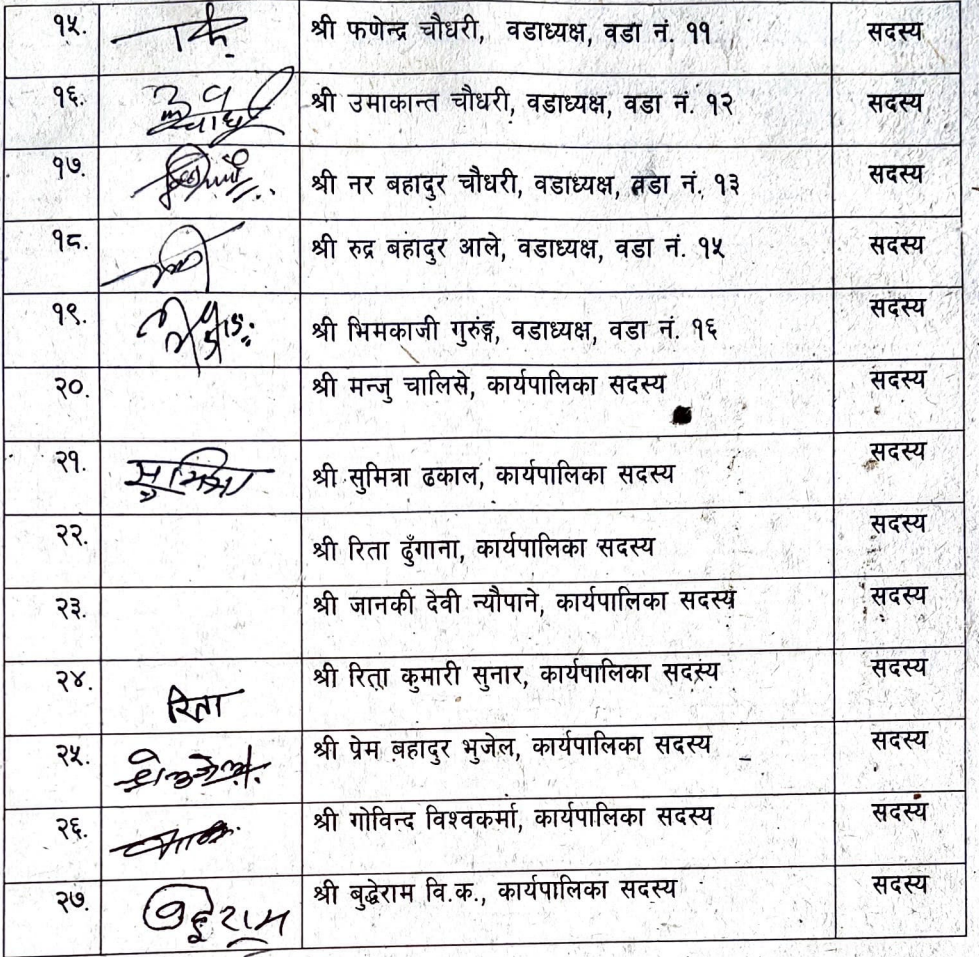 १५. श्री फणेन्द्र चौधरी, वडाध्यक्ष, वडा नं. ११ सदस्य
१६. श्री उमाकान्त चौधरी, वडाध्यक्ष, वडा नं. १२ सदस्य
१७. श्री नर बहादुर चौधरी, वडाध्यक्ष, वडा नं. १३ सदस्य
१८. श्री रुद्र बहादुर आले, वडाध्यक्ष, वडा नं. १५ सदस्य
१९. श्री भिमकाजी गुरुङ्ग, वडाध्यक्ष, वडा नं. १६ सदस्य
२०. श्री मन्जु चालिसे, कार्यपालिका सदस्य सदस्य
२१. सुमित्रा श्री सुमित्रा ढकाल, कार्यपालिका सदस्य सदस्य
२२. श्री रिता ढुँगाना, कार्यपालिका सदस्य सदस्य
२३. श्री जानकी देवी न्यौपाने, कार्यपालिका सदस्य सदस्य
२४. रिता श्री रिता कुमारी सुनार, कार्यपालिका सदस्य सदस्य
२५. श्री प्रेम बहादुर भुजेल, कार्यपालिका सदस्य सदस्य
२६. श्री गोविन्द विश्वकर्मा, कार्यपालिका सदस्य सदस्य
२७. बुद्धेराम श्री बुद्धेराम वि.क., कार्यपालिका सदस्य सदस्य